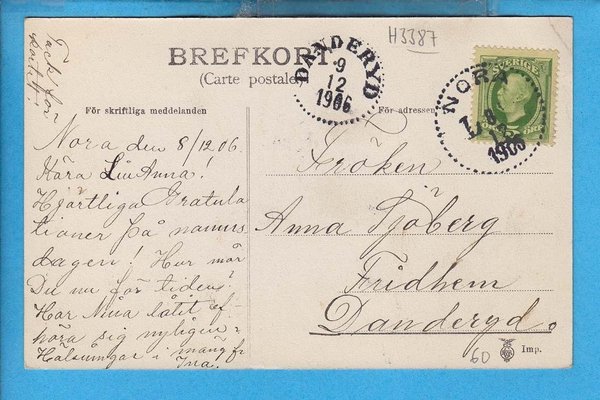 H3387
Tack för
kortet.
BREFKORT
(Carte postale)
DANDERYD
9
12
1906
SVERIGE
ÖRE
NORA
8
12
1906
För skriftliga meddelanden
För adressen
Nora den 8/12.06.
Kära Lill Anna!
Hjärtliga Gratula
tioner på namns
dagen! Hur mår
Du nu för tiden?
Har Nina låtit af
höra sig nyligen?
Hälsningar i mängd fr
Ina.
Fröken
Anna Sjöberg
Fridhem
Danderyd.
60
Imp.